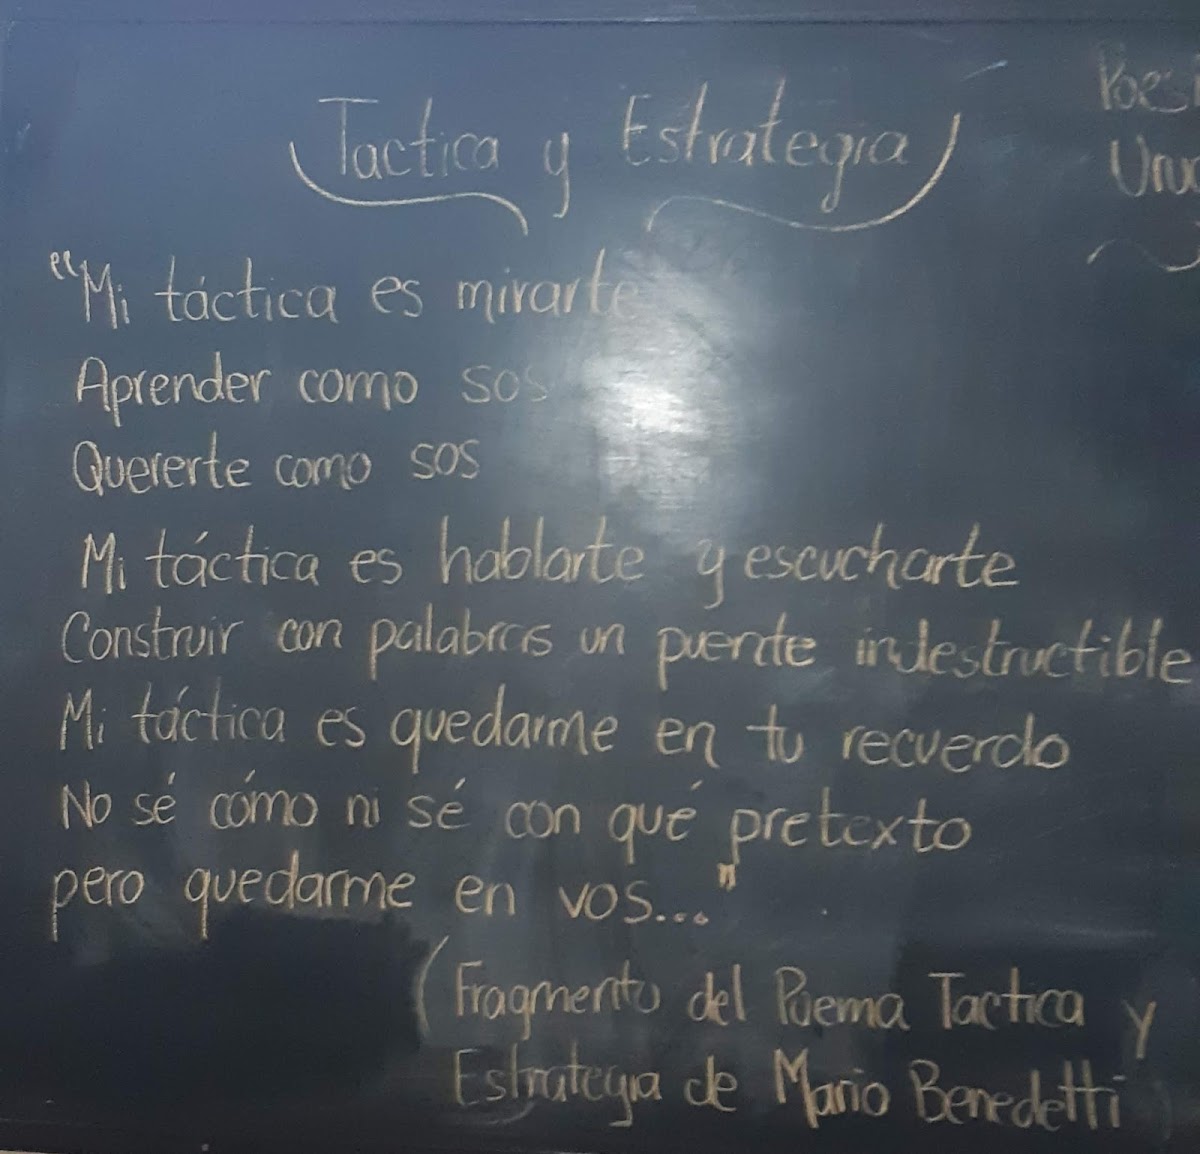 Tactica y Estrategia
Poesí
Uru
"Mi táctica es mirarte
Aprender como sos
Quererte como sos
Mi táctica es hablarte y escucharte
Construir con palabras un puente indestructible
Mi táctica es quedarme en tu recuerdo
No sé cómo ni sé con qué pretexto
pero quedarme en vos..."
(Fragmento del Poema Tactica y
Estrategia de Mario Benedetti)